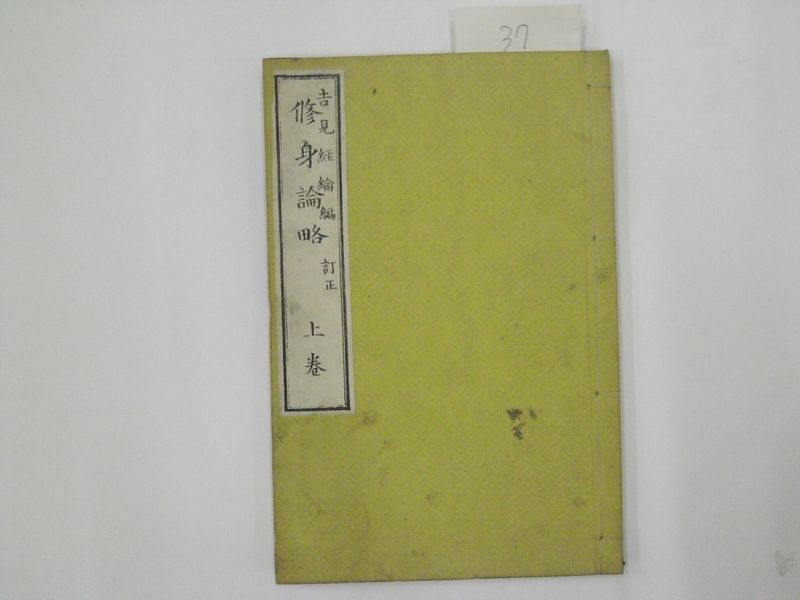 37
吉見經綸編
訂正
修身論略
上卷